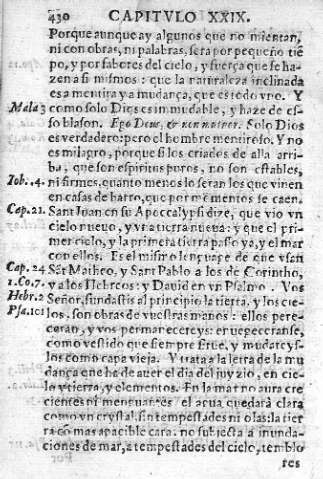 430 CAPITVLO XXIX.
Porque aunque ay algunos que no mientan,
ni con obras, ni palabras, sera por pequeño tiē
po, y por fabores del cielo, y fuerça que se ha-
zen a si mismos: que la naturaleza inclinada
es a mentira y a mudança, que es todo vno. Y
Mala 3 como solo Dios es inmudable, y haze de es-
so blason. Ego Deus, & non mutor. Solo Dios
es verdadero: pero el hombre mentiroso. Y no
es milagro, porque si los criados de alla arri-
ba, que son espiritus puros, no son estables,
Iob. 4. ni firmes, quanto menos lo seran los que viuen
en casas de barro, que por momentos se caen.
Cap. 21. San Iuan en su Apocalypsi dize, que vio vn
cielo nueuo, y vna tierra nueua: y que el pri-
mer cielo, y la primera tierra passo ya, y el mar
con ellos. Es el mismo lenguage de que vsan
Cap. 24 Sāt Matheo, y Sant Pablo a los de Corintho,
1. Co. 7. y a los Hebreos: y Dauid en vn Psalmo. Vos
Hebr. 2 Señor, fundastis al principio la tierra, y los cie-
Psa. 101 los, son obras de vuestras manos: ellos pere-
ceran, y vos permanecereys: enuegeceranse,
como vestido que siempre sirue, y mudareys-
los como capa vieja. Y trata a la letra de la mu
dança que ha de auer el dia del juyzio, en cie-
lo y tierra, y elementos. En la mar no aura cre
cientes ni menguantes el agua quedará clara
como vn crystal, sin tempestades ni olas: la tier
rá mas apacible cara: no subiecta a inunda-
ciones de mar, a tempestades del cielo, temblo
res